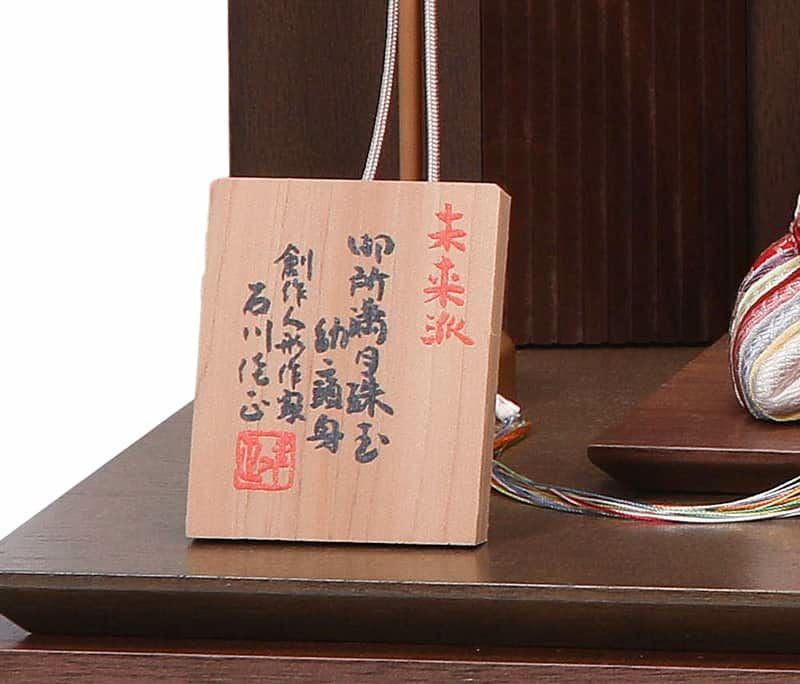 未来派
御所満月珠玉
幼い頭身
創作人形作家
石川佳正